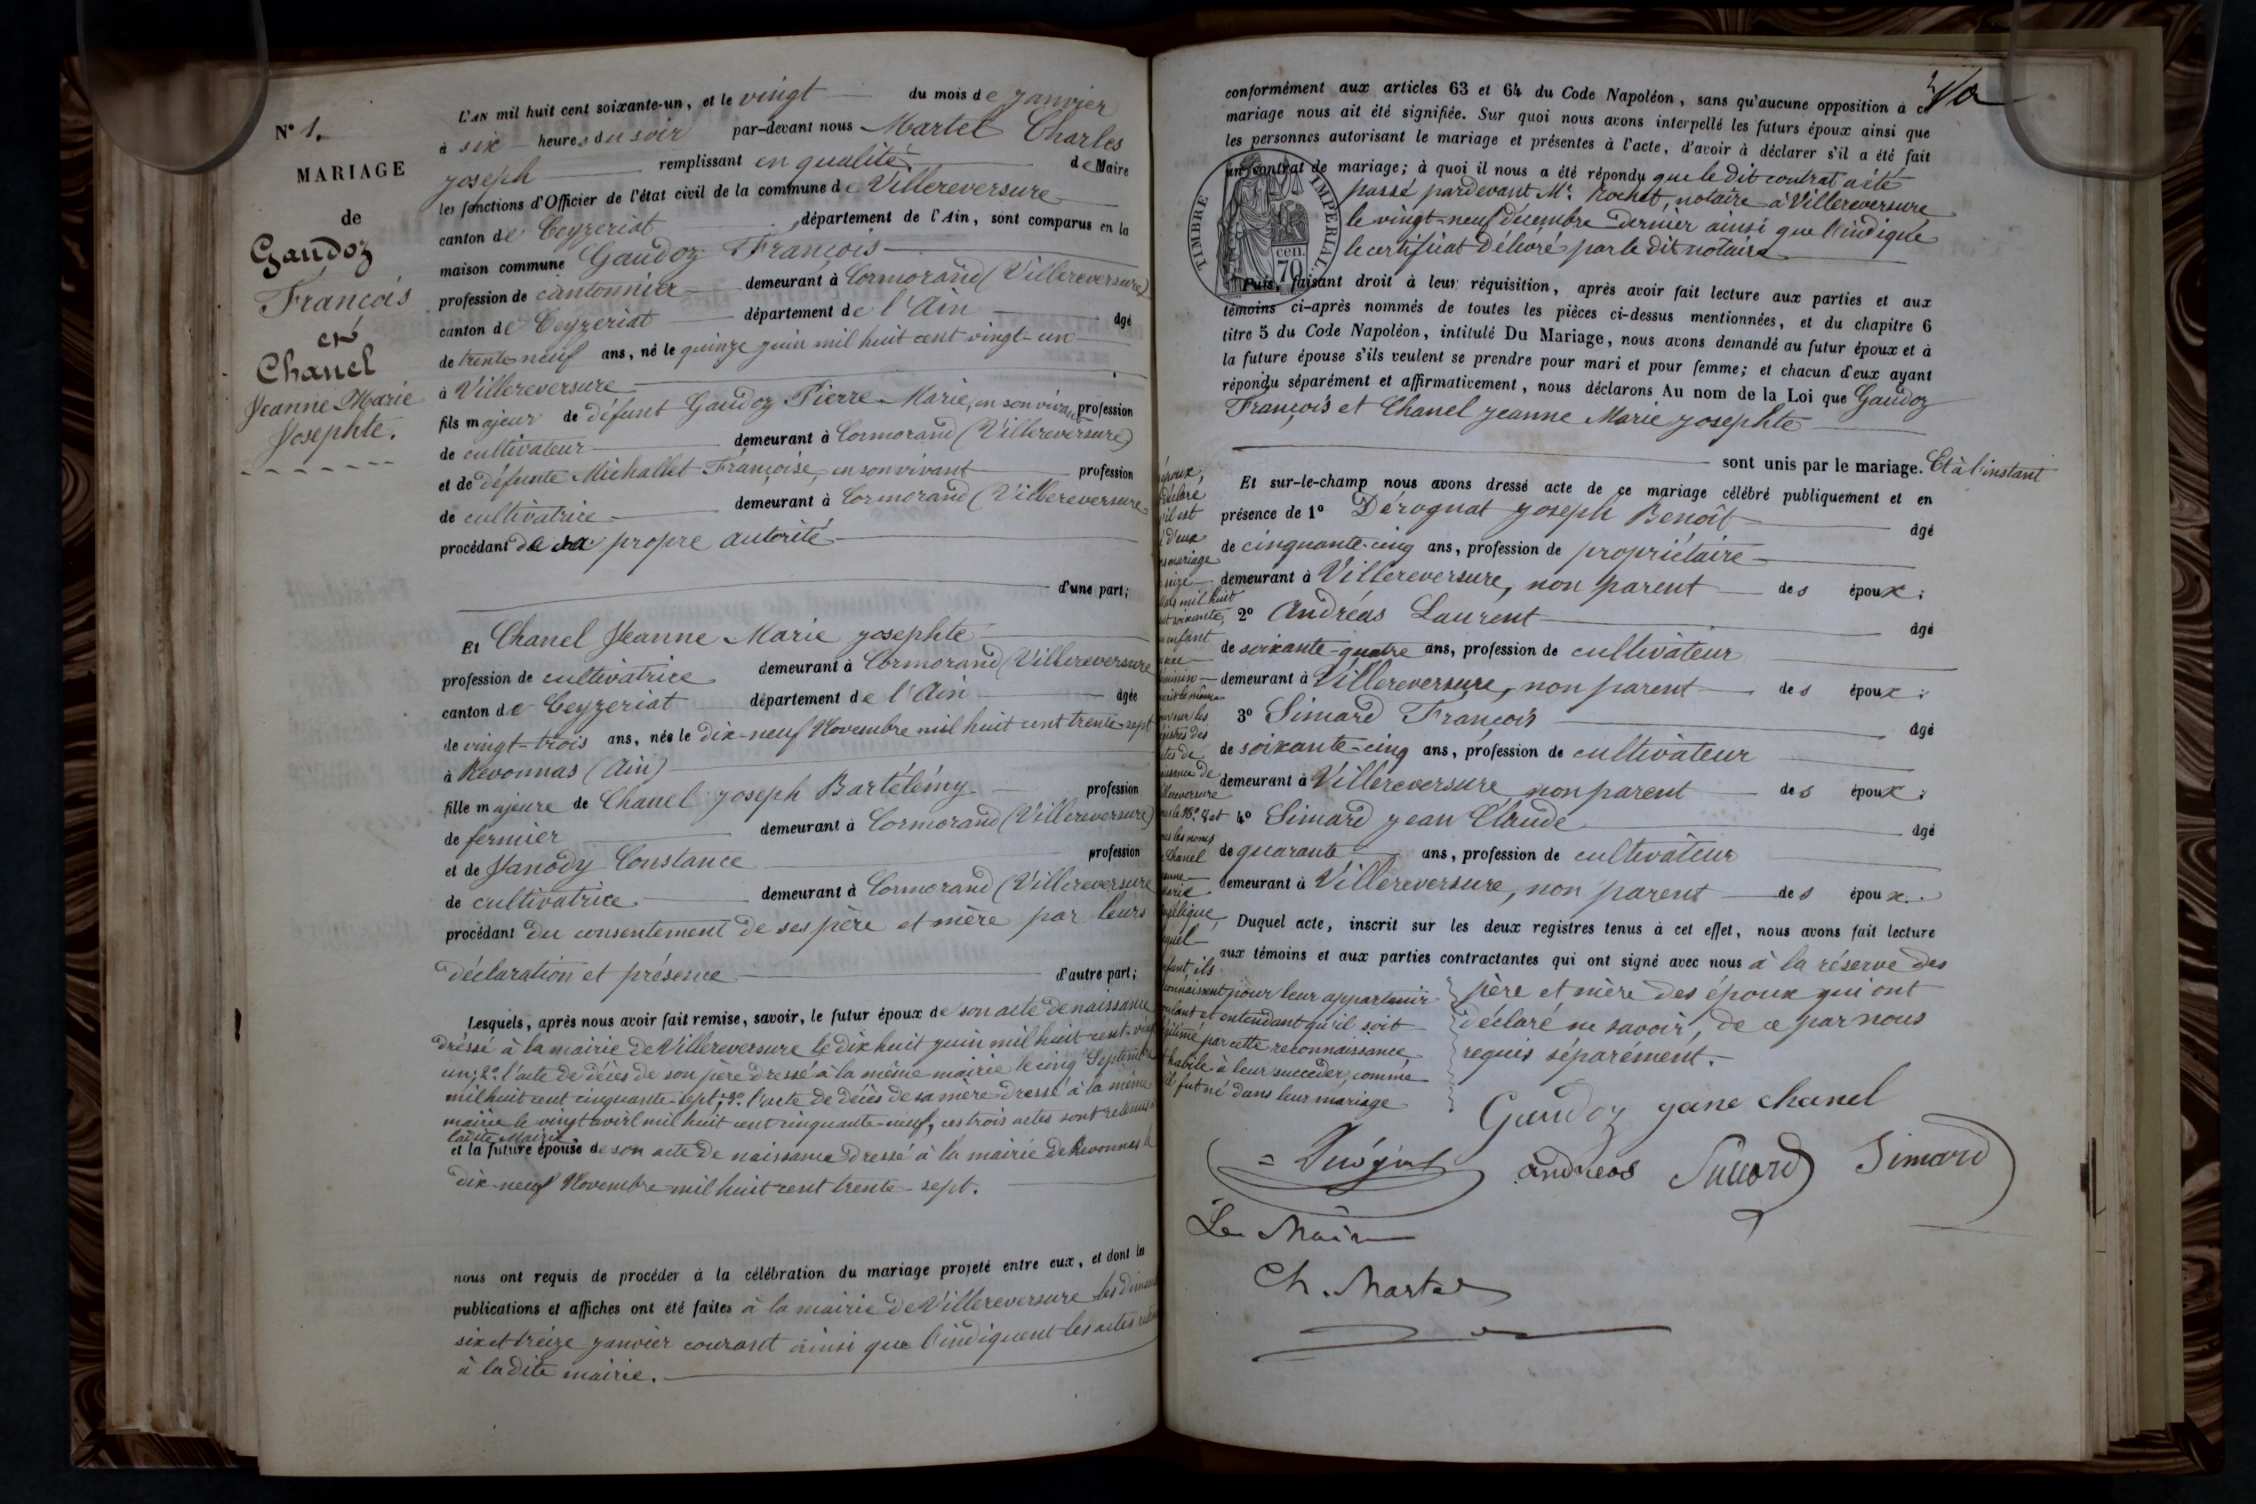 N° 1.
MARIAGE
de
Gaudoz
François
et
Chanel
Jeanne Marie
Josephte.
L'AN mil huit cent soixante-un, et le vingt du mois de janvier
à six heures du soir par-devant nous Martel Charles
joseph remplissant en qualité de Maire
les fonctions d'Officier de l'état civil de la commune de Villereversure
canton de Ceyzeriat, département de l'Ain, sont comparus en la
maison commune Gaudoz François
profession de cantonnier demeurant à Cormorand (Villereversure)
canton de Ceyzeriat département de l'Ain âgé
de trente-neuf ans, né le quinze juin mil huit cent vingt-un
à Villereversure
fils majeur de défunt Gaudoz Pierre-Marie, en son vivant profession
de cultivateur demeurant à Cormorand (Villereversure)
et de défunte Michallet Françoise, en son vivant profession
de cultivatrice demeurant à Cormorand (Villereversure
procédant de sa propre autorité
d'une part;
Et Chanel Jeanne Marie josephte
profession de cultivatrice demeurant à Cormorand (Villereversure
canton de Ceyzeriat département de l'Ain âgée
de vingt-trois ans, née le dix-neuf Novembre mil huit cent trente-sept
à Revonnas (Ain)
fille majeure de Chanel joseph Bartélémy profession
de fermier demeurant à Cormorand (Villereversure)
et de Janody Constance profession
de cultivatrice demeurant à Cormorand (Villereversure
procédant du consentement de ses père et mère par leurs
déclaration et présence d'autre part;
Lesquels, après nous avoir fait remise, savoir, le futur époux de son acte de naissance
dressé à la mairie de Villereversure le dix huit juin mil huit cent vingt
un; 2° l'acte de décès de son père dressé à la même mairie le cinq Septembre
mil huit cent cinquante-sept; 3° l'acte de décès de sa mère dressé à la même
mairie le vingt avril mil huit cent cinquante-neuf, ces trois actes sont retenus
ladite Mairie
et la future épouse de son acte de naissance dressé à la mairie de Revonnas le
dix-neuf Novembre mil huit cent trente-sept.
nous ont requis de procéder à la célébration du mariage projeté entre eux, et dont les
publications et affiches ont été faites à la mairie de Villereversure les
six et treize janvier courant ainsi que l'indiquent les actes
à la dite mairie.
conformément aux articles 63 et 64 du Code Napoléon, sans qu'aucune opposition à ce
mariage nous ait été signifiée. Sur quoi nous avons interpellé les futurs époux ainsi que
les personnes autorisant le mariage et présentes à l'acte, d'avoir à déclarer s'il a été fait
un contrat de mariage; à quoi il nous a été répondu que le dit contrat a été
passé pardevant Me. Rochet, notaire à Villereversure
le vingt-neuf décembre dernier ainsi que l'indique
le certificat délivré par le dit notaire
TIMBRE IMPERIAL.
cen.
70
Puis, faisant droit à leur réquisition, après avoir fait lecture aux parties et aux
témoins ci-après nommés de toutes les pièces ci-dessus mentionnées, et du chapitre 6
titre 5 du Code Napoléon, intitulé Du Mariage, nous avons demandé au futur époux et à
la future épouse s'ils veulent se prendre pour mari et pour femme; et chacun d'eux ayant
répondu séparément et affirmativement, nous déclarons Au nom de la Loi que Gaudoz
François et Chanel jeanne Marie josephte
sont unis par le mariage. Et à l'instant
Et sur-le-champ nous avons dressé acte de ce mariage célébré publiquement et en
présence de 1° Dérognat joseph Benoît âgé
de cinquante-cinq ans, profession de propriétaire
demeurant à Villereversure, non parent des époux;
2° Andréas Laurent âgé
de soixante-quatre ans, profession de cultivateur
demeurant à Villereversure, non parent des époux;
3° Simard François âgé
de soixante-cinq ans, profession de cultivateur
demeurant à Villereversure non parent des époux;
4° Simard jean Claude âgé
de quarante ans, profession de cultivateur
demeurant à Villereversure, non parent des époux.
Duquel acte, inscrit sur les deux registres tenus à cet effet, nous avons fait lecture
aux témoins et aux parties contractantes qui ont signé avec nous à la réserve des
père et mère des époux qui ont
déclaré ne savoir, de ce par nous
requis séparément.
époux,
d'eux
mariage
mil huit
enfant
les
de
Chanel
ils
pour leur appartenir
et entendant qu'il soit
par cette reconnaissance
habile à leur succéder, comme
il fut né dans leur mariage
Gaudoz jane chanel
andreas Simard Simard
Le Maire
Ch. Martel